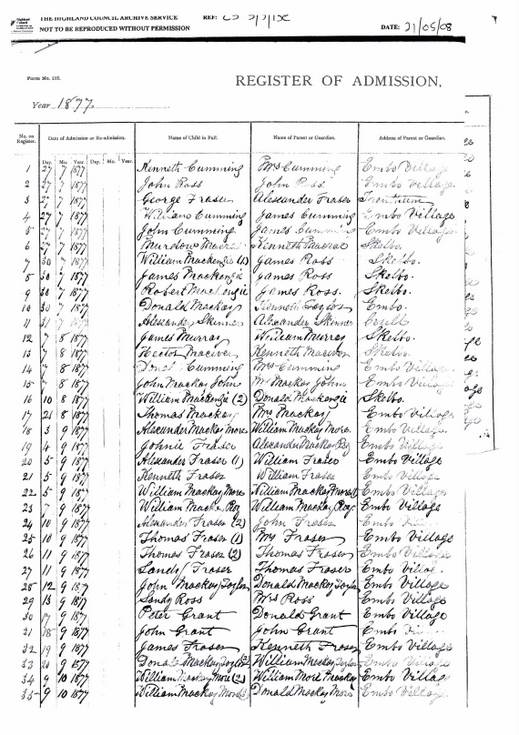 THE HIGHLAND COUNCIL ARCHIVE SERVICE REF:
NOT TO BE REPRODUCED WITHOUT PERMISSION DATE: 21/05/08
Form No. 
REGISTER OF ADMISSION,
Year 1877
No. on Register. Date of Admission or Re-admission. Name of Child in Full. Name of Parent or Guardian. Address of Parent or Guardian.
Day. Mo. Year. Day. Mo. Year.
1 27 7 1877 Kenneth Cumming Mrs Cumming Embo Village
2 27 7 1877 John Ross John Ross Embo Village
3 27 7 1877 George Fraser Alexander Fraser
4 27 7 1877 William Cumming James Cumming Embo Village
5 27 7 1877 John Cumming James Cumming Embo Village
6 27 7 1877 Murdow Kenneth Macrae Skelbo.
7 30 7 1877 William Mackenzie (1) James Ross Skelbo.
8 30 7 1877 James Mackenzie James Ross Skelbo.
9 30 7 1877 Robert Mackenzie James Ross. Skelbo.
10 30 7 1877 Donald Mackay Kenneth Embo.
11 31 7 1877 Alexander Skinner Alexander Skinner
12 7 8 1877 James Murray William Murray Skelbo.
13 7 8 1877 Hector Kenneth Skelbo.
14 7 8 1877 Cumming Mrs Cumming Embo Village
15 7 8 1877 John Mackay John Mackay John Embo Village
16 10 8 1877 William Mackenzie (2) Donald Mackenzie Skelbo.
17 21 8 1877 Thomas Mackay Mrs Mackay Embo Village
18 3 9 1877 Alexander Mackay More William Mackay More Embo Village.
19 4 9 1877 Johnie Fraser Alexander Mackay Embo Village
20 5 9 1877 Alexander Fraser (1) William Fraser Embo Village
21 5 9 1877 Kenneth Fraser William Fraser Embo Village
22 5 9 1877 William Mackay More William Mackay More Embo Village
23 7 9 1877 William Mackay Roy William Mackay Roy Embo Village
24 10 9 1877 Alexander Fraser (2) John Fraser Embo
25 10 9 1877 Thomas Fraser (1) Mrs Fraser Embo Village
26 11 9 1877 Thomas Fraser (2) Thomas Fraser Embo Village
27 11 9 1877 Sandy Fraser Thomas Fraser Embo
28 12 9 1877 John Mackay Taylor Donald Mackay Taylor Embo Village
29 13 9 1877 Sandy Ross Mrs Ross Embo Village
30 17 9 1877 Peter Grant Donald Grant Embo Village
31 18 9 1877 John Grant John Grant Embo
32 19 9 1877 James Fraser Kenneth Fraser Embo Village
33 9 1877 Donald Mackay William Mackay Embo Village
34 9 10 1877 William Mackay More (2) William More Mackay Embo Village
35 9 10 1877 William Mackay More Donald Mackay More Embo Village